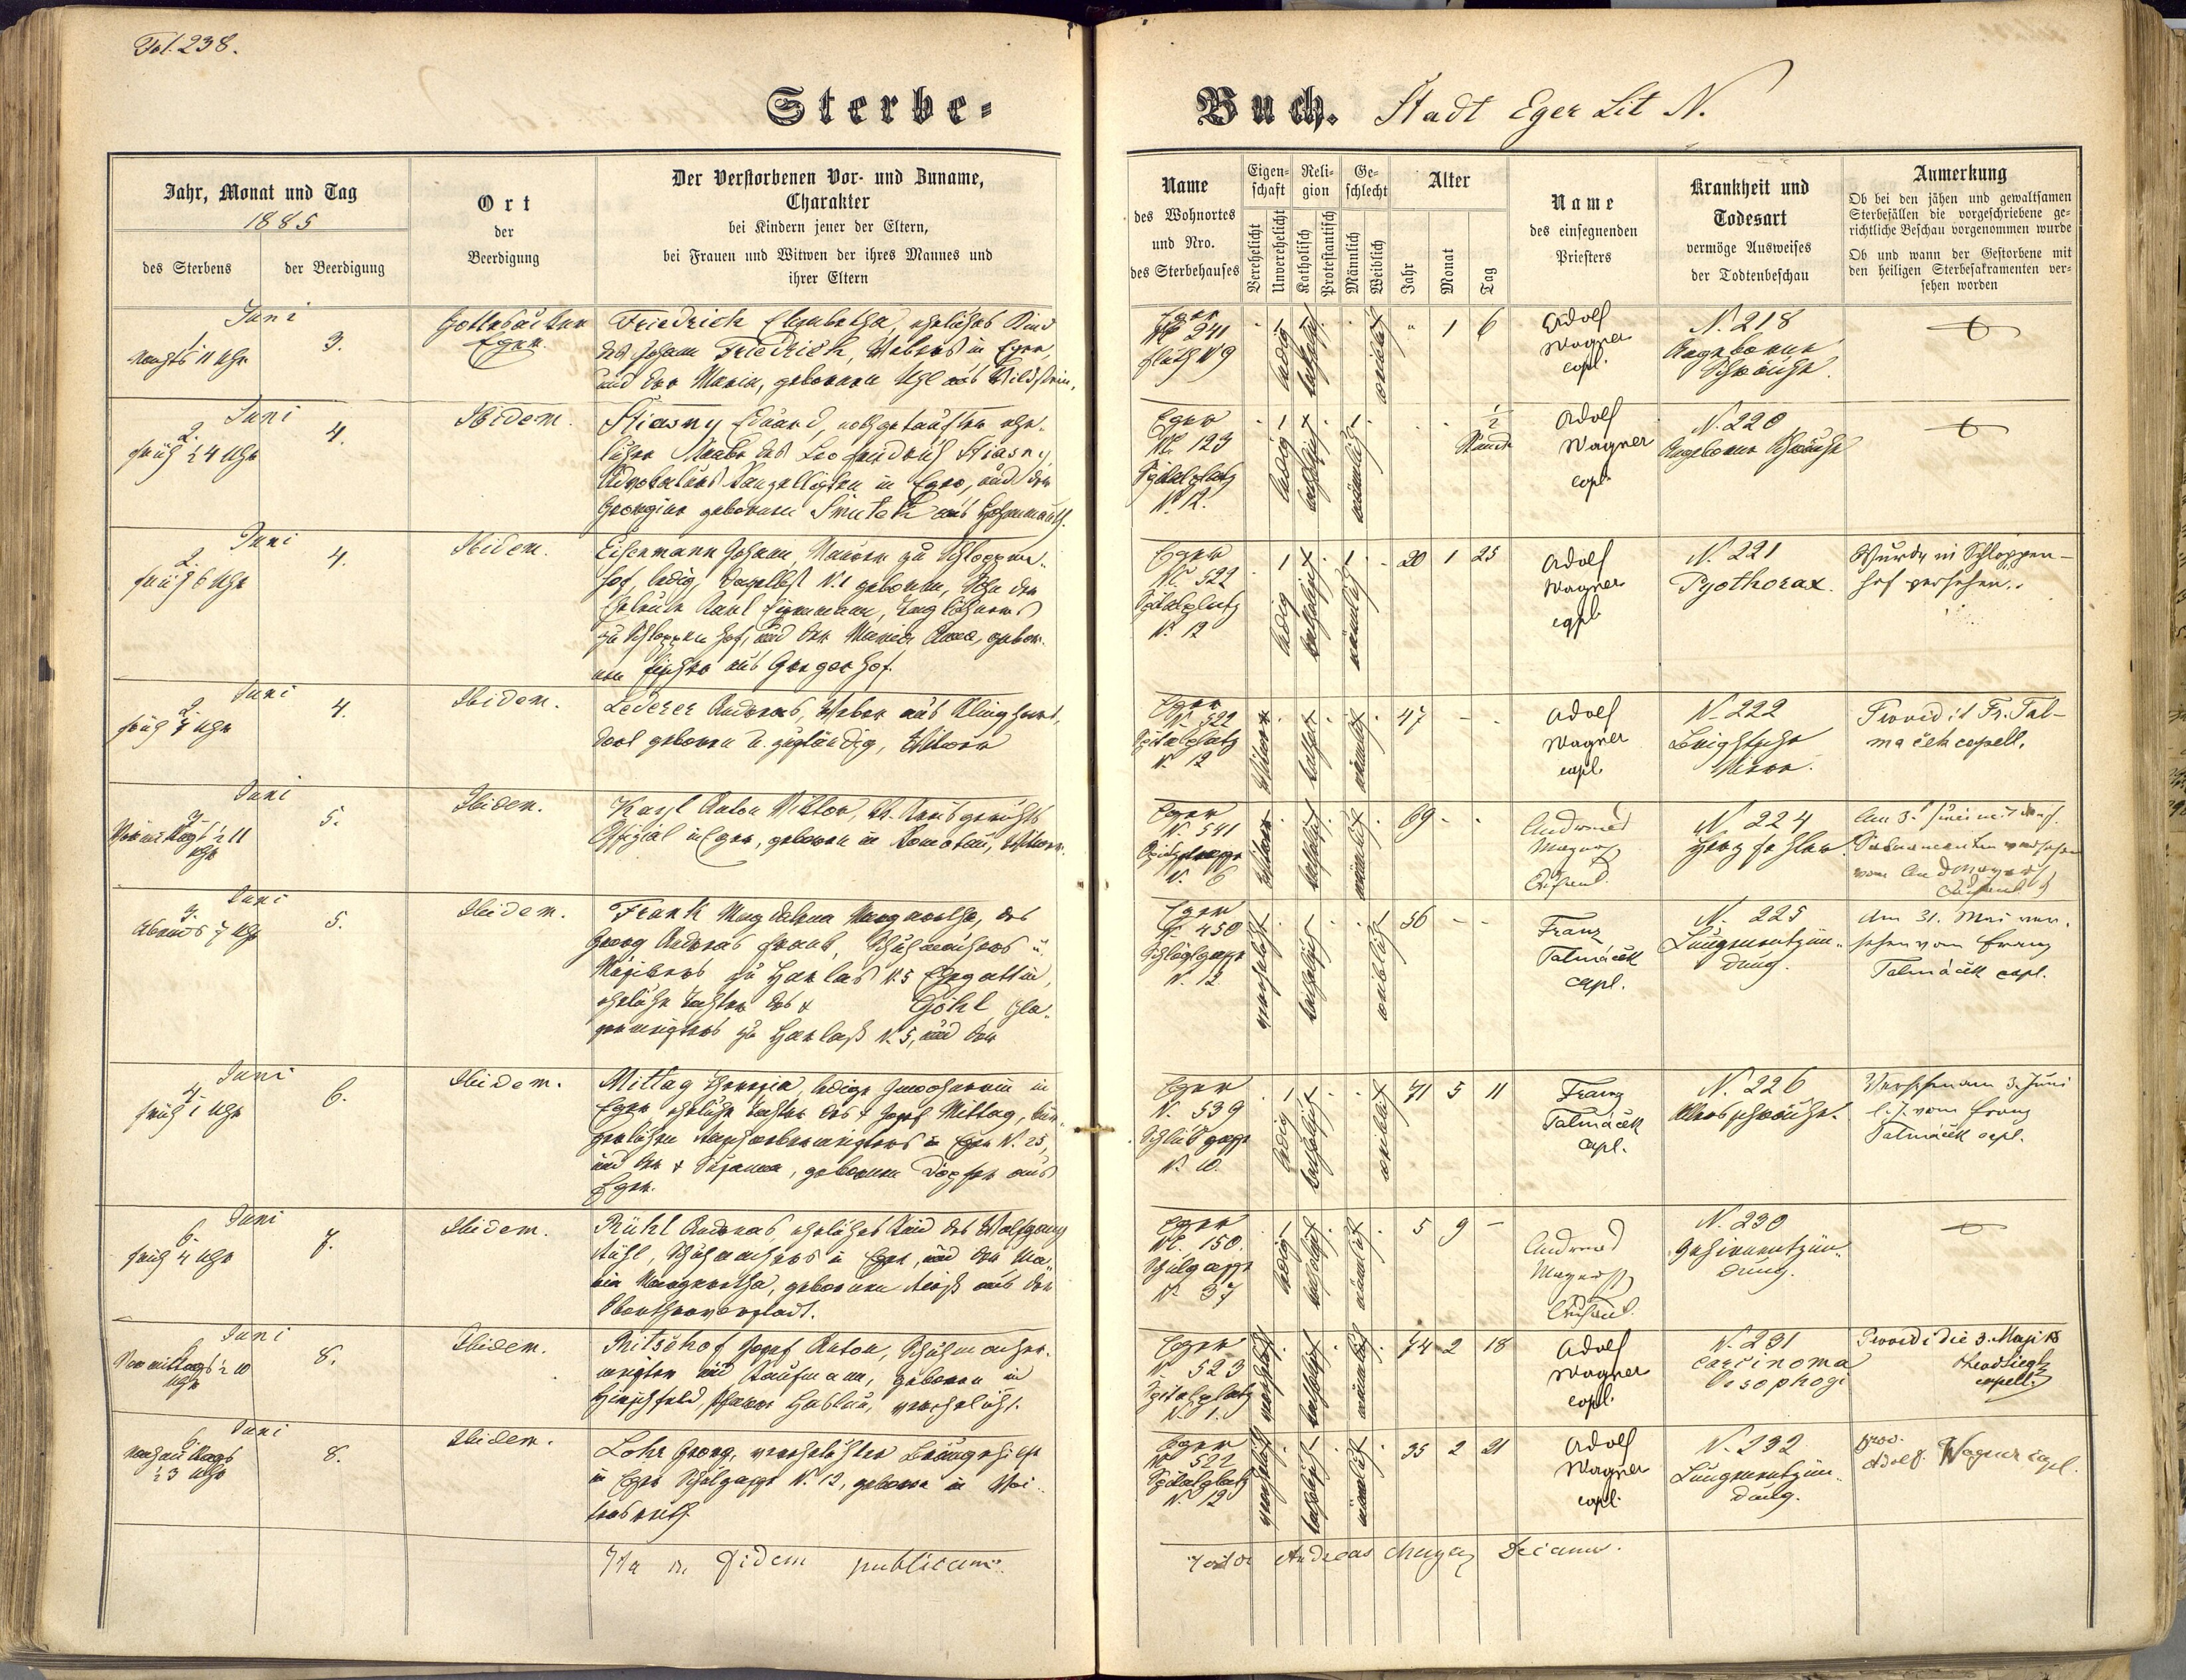 Fol. 238.
Sterbe-
Buch. Stadt Eger Lit N.
Jahr, Monat und Tag
1885
des Sterbens
der Beerdigung
Ort
der
Beerdigung
Der Verstorbenen Vor- und Zuname,
Charakter
bei Kindern jener der Eltern,
bei Frauen und Witwen der ihres Mannes und
ihrer Eltern
Name
des Wohnortes
und Nro.
des Sterbehauses
Eigen-
schaft
Verehelicht
Unverehelicht
Reli-
gion
Katholisch
Protestantisch
Ge-
schlecht
Männlich
Weiblich
Alter
Jahr
Monat
Tag
Name
des einsegnenden
Priesters
Krankheit und
Todesart
vermöge Ausweises
der Todtenbeschau
Anmerkung
Ob bei den jähen und gewaltsamen
Sterbefällen die vorgeschriebene ge-
richtliche Beschau vorgenommen wurde
Ob und wann der Gestorbene mit
den heiligen Sterbesakramenten ver-
sehen worden
Juni
1.
Nachts 11 Uhr
3.
Gottesacker
Eger.
Friedrich Elisabetha, eheliches Kind
des Johann Friedrich, Webers in Eger,
und der Maria, geborenen Uhl aus Wildstein.
Eger
N. 241
N 9
ledig
katholisch
weiblich
1 6
Adolf
Wagner
capl.
N. 218
Angeborene
Schwäche.
Juni
2.
früh ½4 Uhr
4.
Ibidem.
Stiasny Eduard, nothgetaufter ehe-
licher Knabe des Leo Friedrich Stiasny,
Kanzellisten in Eger, und der
Georgine geborenen Smutek aus Hohenmauth.
Eger
N. 123
Spitalplatz
N. 12.
ledig
katholisch
männlich
½
Stunde
Adolf
Wagner
capl.
N. 220
Angeborene Schwäche
Juni
2.
früh 6 Uhr
4.
Ibidem.
Eisenmann Johann, Maurer zu Schloppen-
hof, ledig, daselbst N. 1 geboren, Sohn der
Eheleute Karl Eisenmann, Taglöhners
zu Schloppenhof, und der Maria Anna, gebor-
nen Fischer aus
Eger
N. 522
Spitalplatz
N. 12
ledig
katholisch
männlich
20 1 25
Adolf
Wagner
capl.
N. 221
Pyothorax.
Wurde in Schloppen-
hof versehen.
Juni
2.
früh 7 Uhr
4.
Ibidem.
Lederer Andreas, Weber aus
geboren u. zuständig, Witwer
Eger
N. 522
Spitalplatz
N. 12
Witwer
männlich
47
Adolf
Wagner
capl.
N. 222
Providit Fr. Tal-
maček capell.
Juni
3.
Vormittags ½ 11
Uhr
5.
Ibidem.
Karl Anton Viktor, k. k. Kreisgerichts
Offizial in Eger, geboren in Komotau, Witwer.
Eger
N. 541
N. 6
Witwer
katholisch
männlich
69
Andreas
N 224
Herzfehler.
Juni
3.
Abends 7 Uhr
5.
Ibidem.
Frank Magdalena Margaretha, des
Georg Andreas Frank, Schuhmachers u.
zu Harlas N. 5 Ehegattin,
eheliche Tochter des † Göhl, Gla-
sermeisters zu Harlaß N. 5, und der
Eger
N. 450
N. 12
verehelicht
katholisch
weiblich
56
Franz
Talmáček
capl.
N. 225
Lungenentzün-
dung.
Am 31. Mai ver-
sehen vom Franz
Talmáček capl.
Juni
4.
früh 1 Uhr
6.
Ibidem.
Mittag Theresia, ledige Inwohnerin in
Eger, eheliche Tochter des † Josef Mittag, bür-
gerlichen in Eger N. 25,
und der † Susanna, geborenen Döpfer aus
Eger.
Eger
N. 539
N. 10.
ledig
katholisch
weiblich
71 5 11
Franz
Talmáček
capl.
N. 226
Altersschwäche.
Versehen am 3. Juni
l. J. vom Franz
Talmáček capl.
Juni
6.
früh 4 Uhr
7.
Ibidem.
Rühl Andreas, eheliches Kind des Wolfgang
Rühl, Schuhmachers in Eger, und der Ma-
ria Margaretha, geborenen aus der
Eger
N. 150.
Schulgasse
N. 37
ledig
katholisch
männlich
5 9
Andreas
N. 230
Gehirnentzün-
dung.
Juni
6.
Vormittags ½ 10
Uhr
8.
Ibidem.
Ritschhof Josef Anton, Schuhmacher-
meister und Kaufmann, geboren in
Hirschfeld, Pfarre Haslau, verehelicht.
Eger
N. 523
Spitalplatz
N. 1.
verehelicht
katholisch
männlich
74 2 18
Adolf
Wagner
capl.
N. 231
carcinoma
Oesophagi
capell.
Juni
6.
Nachmittags
½3 Uhr
8.
Ibidem.
Lohr Georg, verehelichter
in Eger Schulgasse N. 12, geboren in
Eger
N. 522
Spitalplatz
N. 12
verehelicht
katholisch
männlich
35 2 21
Adolf
Wagner
capl.
N. 232
Lungenentzün-
dung.
prov.
Adolf Wagner capl.
Ita in fidem publicam.
Andreas Decanus.